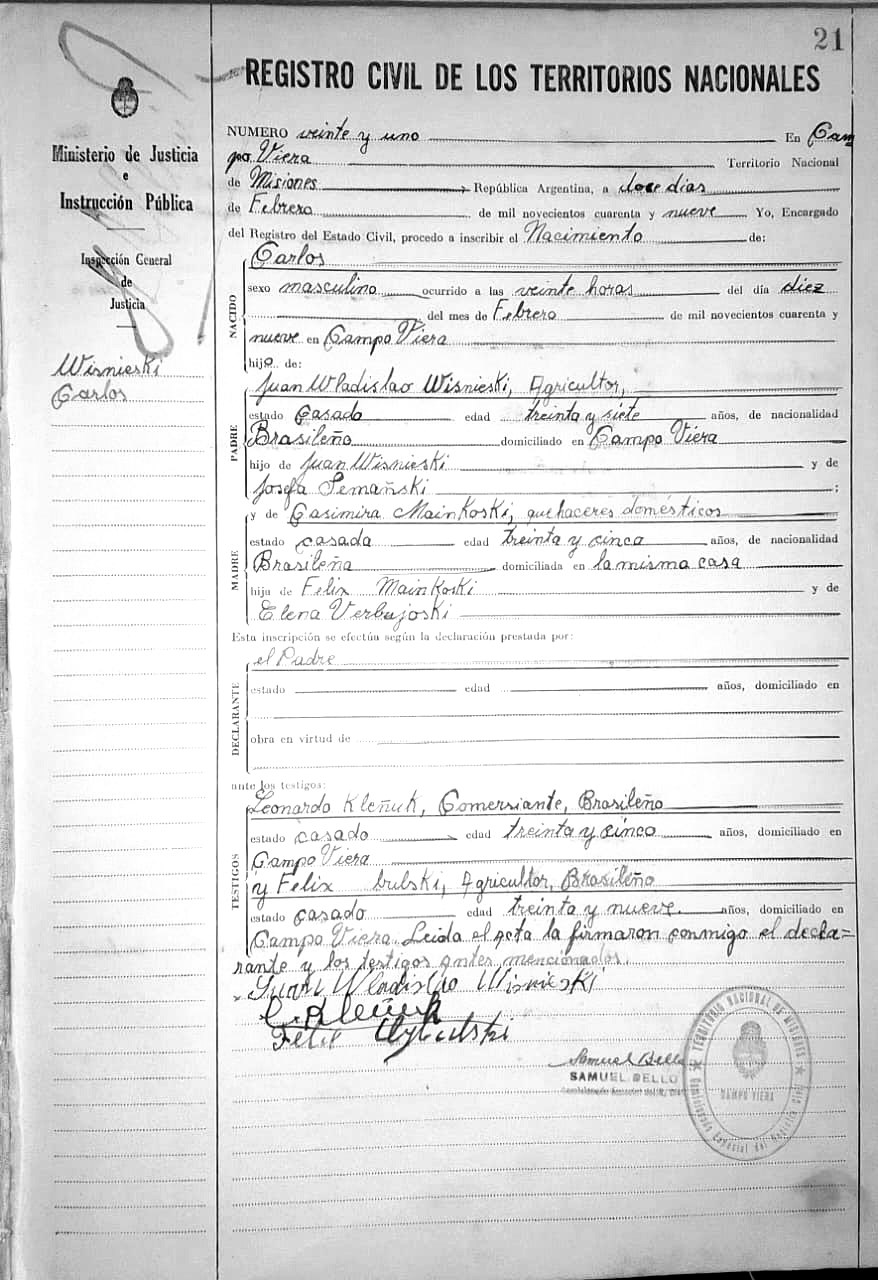 21
REGISTRO CIVIL DE LOS TERRITORIOS NACIONALES
Ministerio de Justicia
e
Instrucción Pública
Inspección General
de
Justicia
Wisnieski
Carlos
NUMERO veinte y uno En Cam
po Viera Territorio Nacional
de Misiones República Argentina, a doce dias
de Febrero de mil novecientos cuarenta y nueve Yo, Encargado
del Registro del Estado Civil, procedo a inscribir el Nacimiento de:
NACIDO
Carlos
sexo masculino ocurrido a las veinte horas del día diez
del mes de Febrero de mil novecientos cuarenta y
nueve en Campo Viera
hijo de:
PADRE
Juan Wladislao Wisnieski, Agricultor,
estado Casado edad treinta y siete años, de nacionalidad
Brasileño domiciliado en Campo Viera
hijo de Juan Wisnieski y de
Josefa Semañski ;
MADRE
y de Casimira Mainkoski, quehaceres domésticos
estado casada edad treinta y cinco años, de nacionalidad
Brasileña domiciliada en la misma casa
hija de Felix Mainkoski y de
Elena Verbujoski
Esta inscripción se efectúa según la declaración prestada por:
DECLARANTE
el Padre
estado edad años, domiciliado en
obra en virtud de
ante los testigos:
TESTIGOS
Leonardo Kleñuk, Comersiante, Brasileño
estado casado edad treinta y cinco años, domiciliado en
Campo Viera
y Felix bulski, Agricultor, Brasileño
estado casado edad treinta y nueve. años, domiciliado en
Campo Viera. Leida el acta la firmaron conmigo el decla=
rante y los testigos antes mencionados.
Juan Wladislao Wisnieski
Felix
Samuel Bello
SAMUEL BELLO
TERRITORIO NACIONAL DE MISIONES
CAMPO VIERA